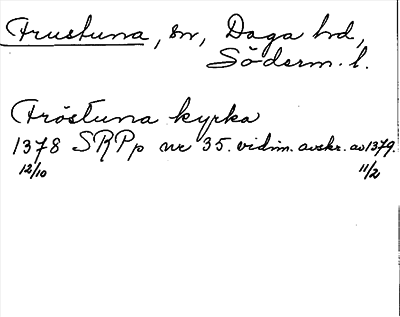 Frustuna, sn, Daga hd,
Söderm. l.
Fröstuna kyrka
1378 SRPp nr 35. vidim. avskr. av 1379.
12/10 11/2